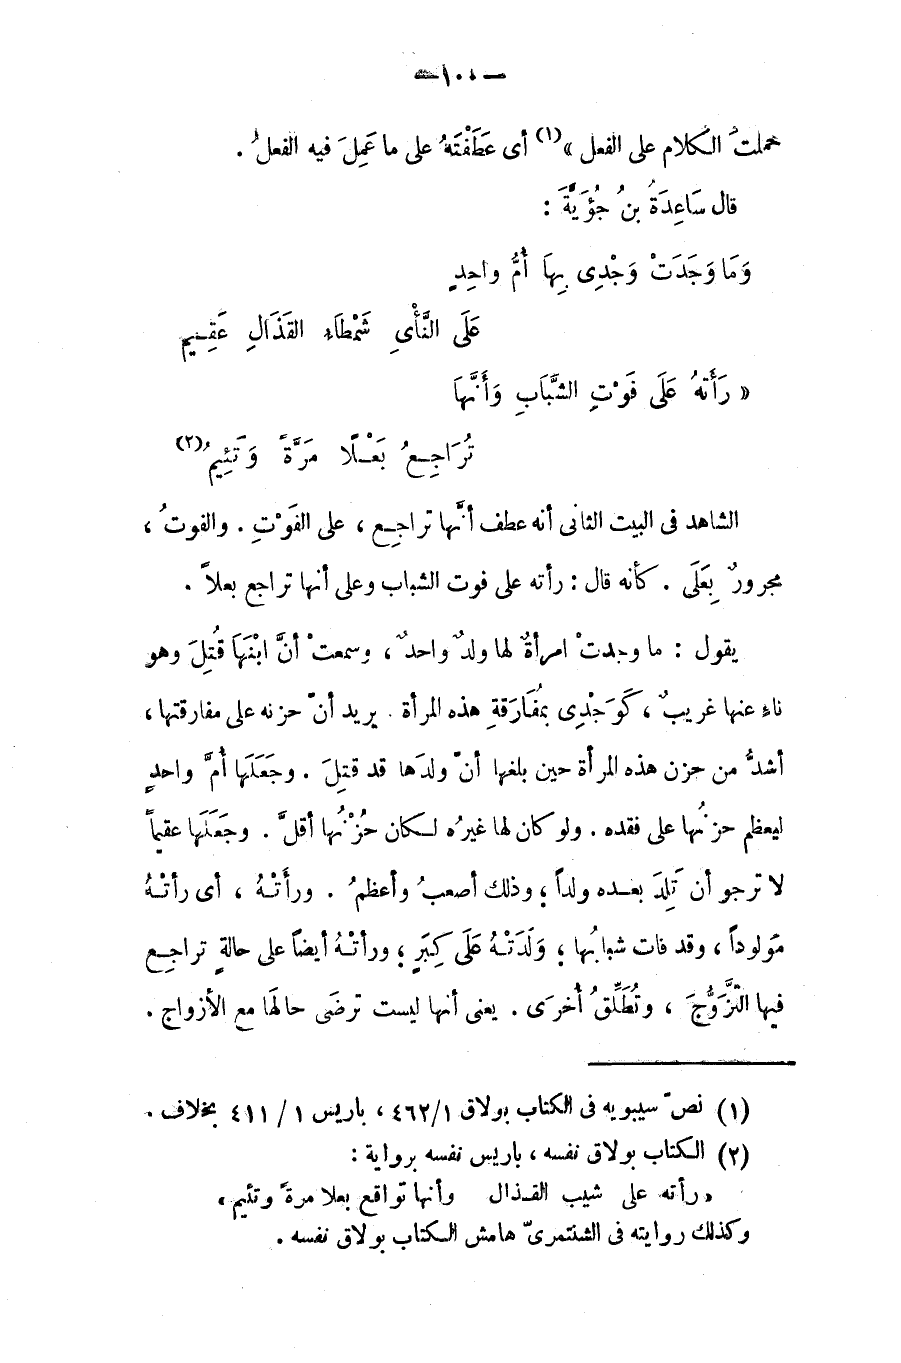 — ١٠١ —
حملتُ الكلام على الفعل »(١) أى عَطَفْتَهُ على ما عَمِلَ فيه الفعلُ .
قال سَاعِدَةُ بنُ جُؤَيَّةَ :
وَمَا وَجَدَتْ وَجْدِى بِهَا أُمُّ واحِدٍ
عَلَى النَّأْىِ شَمْطَاءِ القَذَالِ عَقِيمِ
« رَأَتْهُ عَلَى فَوْتِ الشَّبَابِ وَأَنَّهَا
تُرَاجِعُ بَعْلًا مَرَّةً وَتَئِيمُ(٢)
الشاهد فى البيت الثانى أنه عطف أنَّها تراجِع ، على الفَوْتِ . والفوتُ ،
مجرورٌ بِعَلَى . كأنه قال : رأته على فوت الشباب وعلى أنها تراجع بعلاً .
يقول : ما وجدتْ امرأةٌ لها ولدٌ واحدٌ ، وسمعتْ أنَّ ابْنَهَا قُتِلَ وهو
ناءٍ عنها غريبٌ ، كَوَجْدِى بمُفَارَقةِ هذه المرأة . يريد أنّ حزنه على مفارقتها ،
أشدُّ من حزن هذه المرأة حين بلغها أنّ ولدَها قد قتِلَ . وجَعَلَها أُمَّ واحدٍ
ليعظم حزنُها على فقده . ولو كان لها غيرُه لكان حُزْنُها أقلَّ . وجَعَلَها عقيماً
لا ترجو أن تَلِدَ بعده ولداً ؛ وذلك أصعبُ وأعظمُ . ورأَتْهُ ، أى رأتْهُ
مَولوداً ، وقد فات شبابُها ؛ وَلَدَتْهُ عَلَى كِبَرٍ ؛ ورأتْهُ أيضاً على حالةٍ تراجِع
فيها التَّزَوُّجَ ، وتُطَلِّقُ أُخرَى . يعنى أنها ليست ترضَى حالهَا مع الأزواج .
(١) نصّ سيبويه فى الكتاب بولاق ١/٤٦٢ ، باريس ١ / ٤١١ بخلاف .
(٢) الكتاب بولاق نفسه ، باريس نفسه برواية :
« رأته على شيب القذال وأنها تواقع بعلا مرةً وتئيم »
وكذلك روايته فى الشنتمرىّ هامش الكتاب بولاق نفسه .